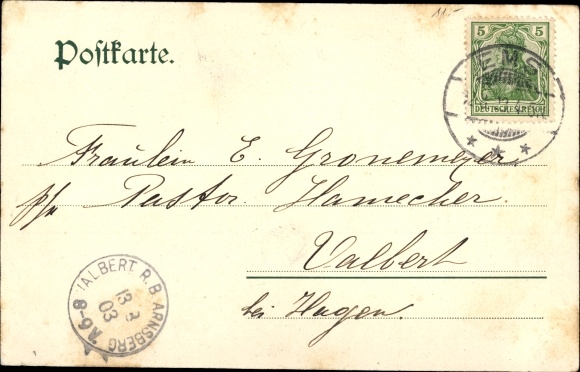 11.-
Postkarte.
5 5
DEUTSCHES REICH
EMS
Fräulein E. Gronemeyer
p/a Pastor Hamecher.
Valbert
bei Hagen.
VALBERT R.B. ARNSBERG
13 3
03
6-8